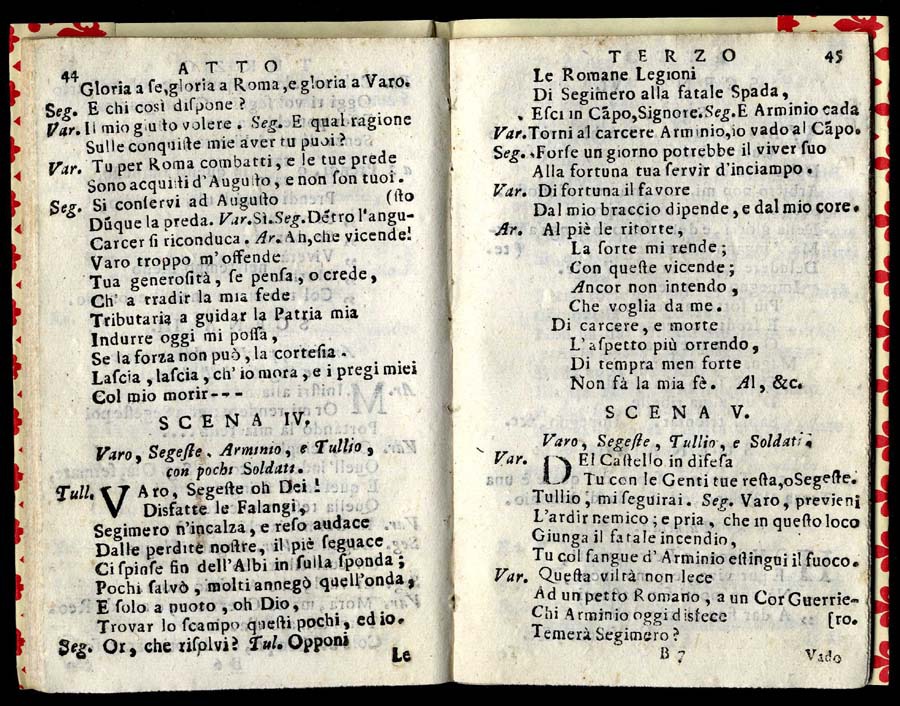 44
ATTO
Gloria a se,gloria a Roma,e gloria a Varo.
Seg. E chi così dispone?
Var. Il mio giusto volere. Seg. E qual ragione
Sulle conquiste mie aver tu puoi?
Var. Tu per Roma combatti, e le tue prede
Sono acquisti d'Augusto, e non son tuoi.
Seg. Si conservi ad Augusto (sto
Dūque la preda. Var.Si.Seg.Dētro l'angu-
Carcer si riconduca. Ar. Ah,che vicende!
Varo troppo m'offende
Tua generosità, se pensa, o crede,
Ch' a tradir la mia fede
Tributaria a guidar la Patria mia
Indurre oggi mi possa,
Se la forza non può, la cortesia.
Lascia, lascia, ch'io mora, e i pregi miei
Col mio morir---
SCENA IV.
Varo, Segeste, Arminio, e Tullio,
con pochi Soldati.
Tull. VAro, Segeste oh Dei!
Disfatte le Falangi,
Segimero n'incalza, e reso audace
Dalle perdite nostre, il piè seguace
Ci spinse fin dell'Albi in sulla sponda;
Pochi salvò, molti annegò quell'onda,
E solo a nuoto, oh Dio,
Trovar lo scampo questi pochi, ed io.
Seg. Or, che risolvi? Tul. Opponi
Le
TERZO
45
Le Romane Legioni
Di Segimero alla fatale Spada,
Esci in Cāpo,Signore.Seg.E Arminio cada
Var.Torni al carcere Arminio,io vado al Cāpo.
Seg. Forse un giorno potrebbe il viver suo
Alla fortuna tua servir d'inciampo.
Var. Di fortuna il favore
Dal mio braccio dipende, e dal mio core.
Ar. Al piè le ritorte,
La sorte mi rende;
Con queste vicende;
Ancor non intendo,
Che voglia da me.
Di carcere, e morte
L'aspetto più orrendo,
Di tempra men forte
Non fà la mia fè. Al, &c.
SCENA V.
Varo, Segeste, Tullio, e Soldati.
Var. DEl Castello in difesa
Tu con le Genti tue resta,o Segeste.
Tullio, mi seguirai. Seg. Varo, previeni
L'ardir nemico; e pria, che in questo loco
Giunga il fatale incendio,
Tu col sangue d'Arminio estingui il fuoco.
Var. Questa viltà non lece
Ad un petto Romano, a un Cor Guerrie-
Chi Arminio oggi disfece [ro.
Temerà Segimero?
B 7
Vado